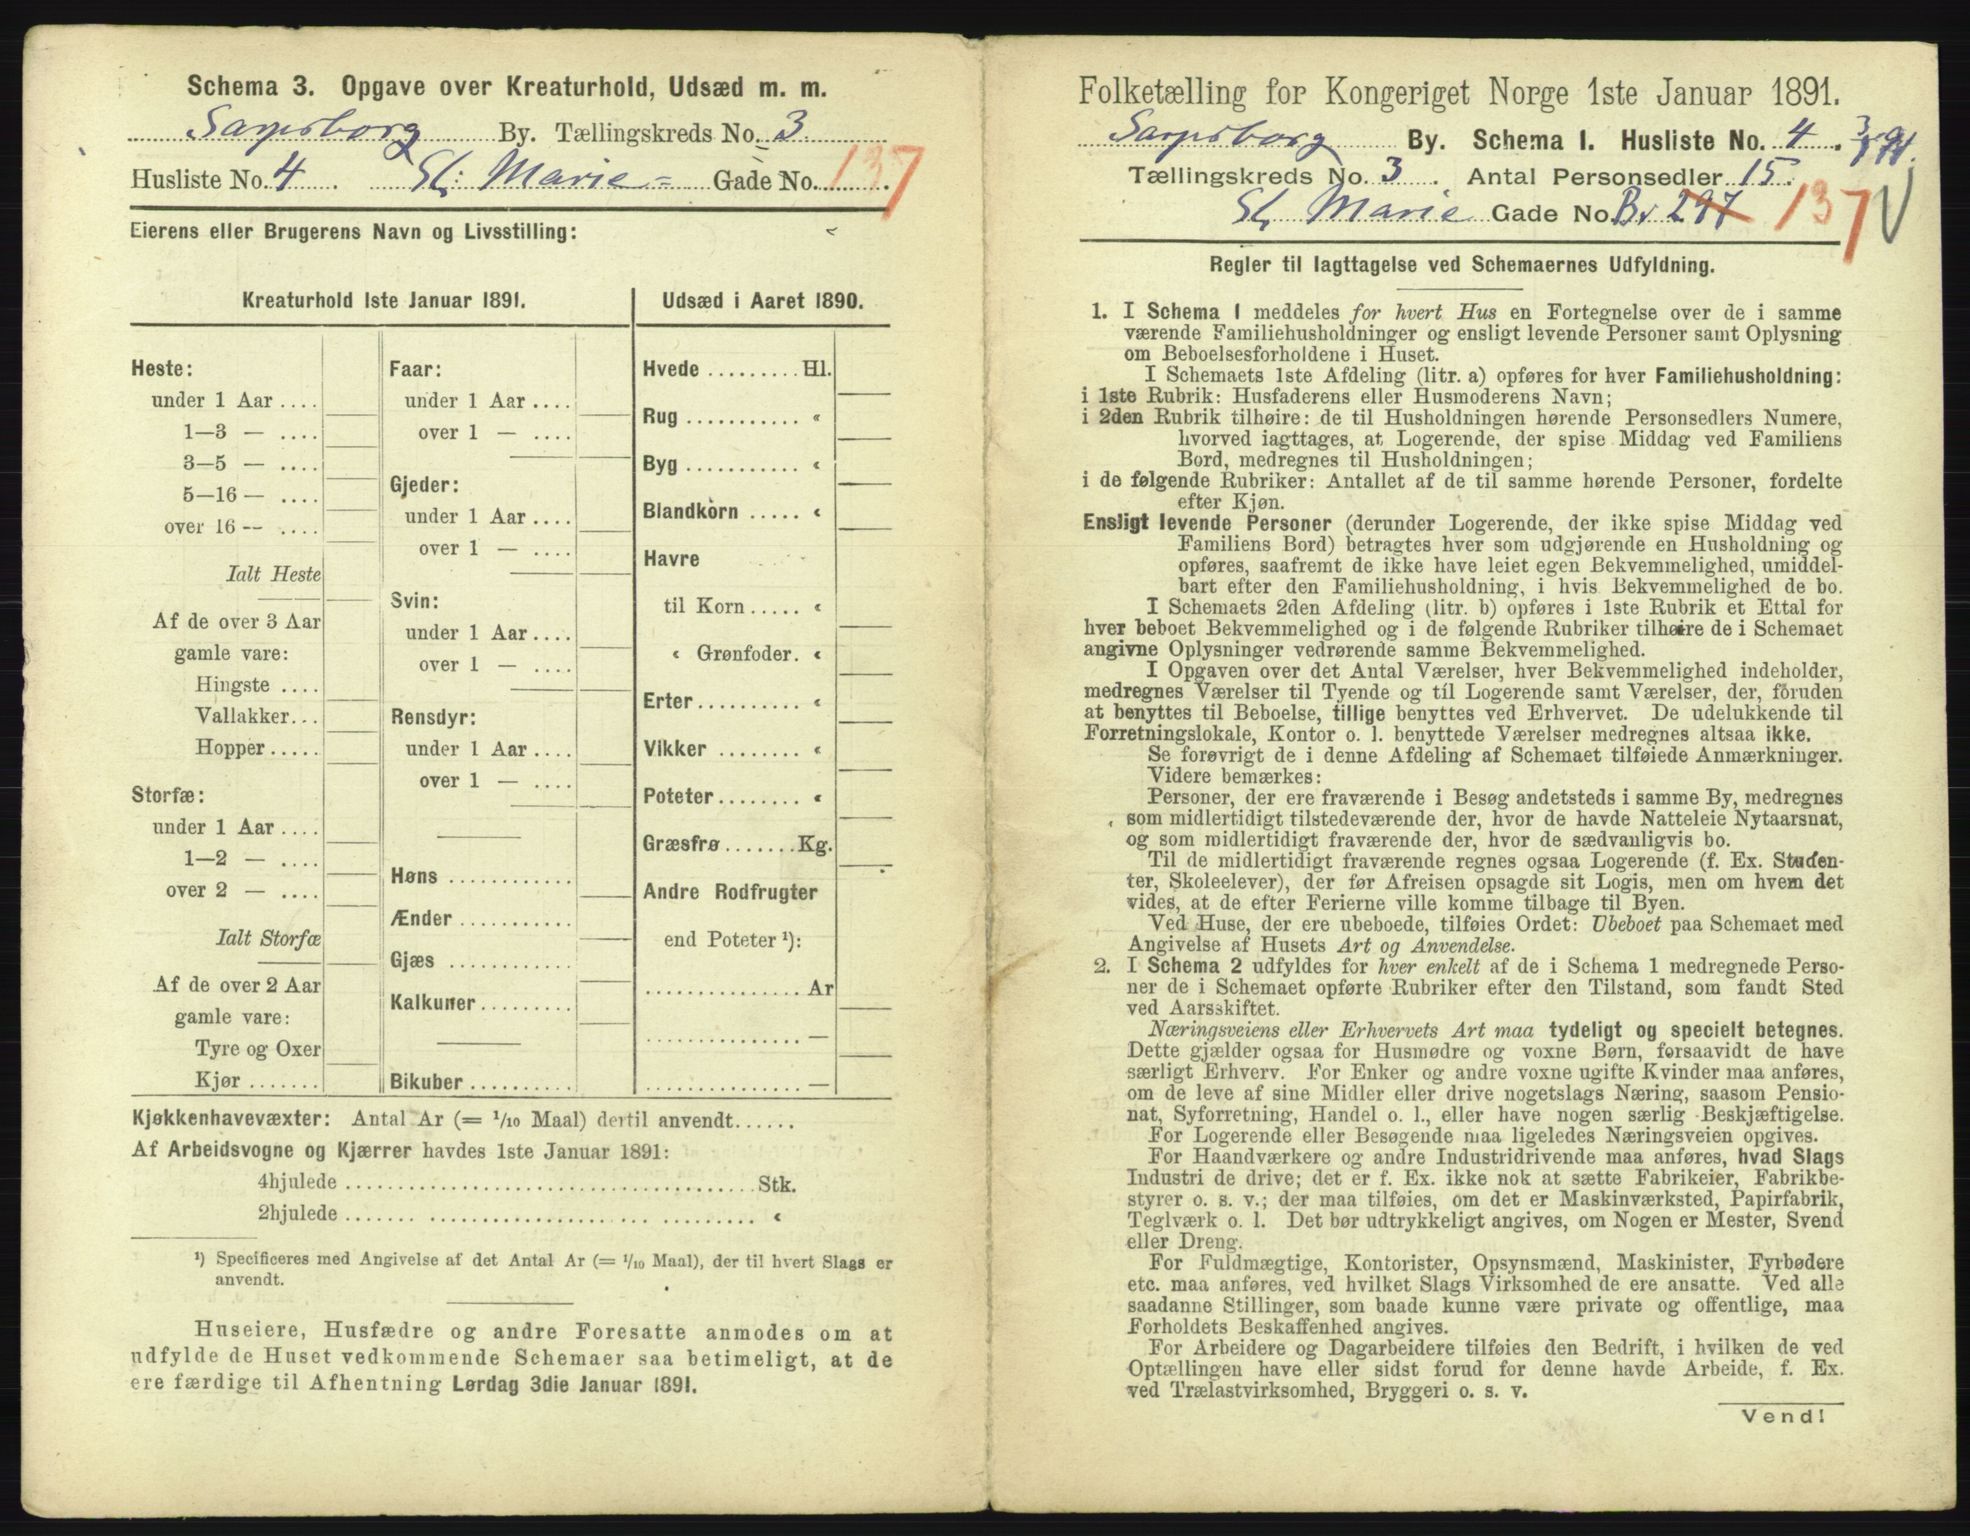 Schema 3. Opgave over Kreaturhold, Udsæd m. m.
Sarpsborg By. Tællingskreds No. 3
Husliste No. 4. St: Marie= Gade No. 137
Eierens eller Brugerens Navn og Livsstilling:
Kreaturhold 1ste Januar 1891.
Heste:
under 1 Aar ....
1—3 — ....
3—5 — ....
5—16 — ....
over 16 — ....
Ialt Heste
Af de over 3 Aar
gamle vare:
Hingste ....
Vallakker...
Hopper .....
Storfæ:
under 1 Aar ....
1—2 — ....
over 2 — ....
Ialt Storfæ
Af de over 2 Aar
gamle vare:
Tyre og Oxer
Kjør .......
Faar:
under 1 Aar ....
over 1 — ....
Gjeder:
under 1 Aar ....
over 1 — ....
Svin:
under 1 Aar ....
over 1 — ....
Rensdyr:
under 1 Aar ....
over 1 — ....
Høns ............
Ænder ...........
Gjæs ............
Kalkuner .........
Bikuber ..........
Udsæd i Aaret 1890.
Hvede ......... Hl.
Rug ........... «
Byg ........... «
Blandkorn ..... «
Havre
til Korn ..... «
« Grønfoder. «
Erter .......... «
Vikker ......... «
Poteter ........ «
Græsfrø ....... Kg.
Andre Rodfrugter
end Poteter ¹):
............... Ar
............... —
............... —
Kjøkkenhavevæxter: Antal Ar (= 1/10 Maal) dertil anvendt......
Af Arbeidsvogne og Kjærrer havdes 1ste Januar 1891:
4hjulede ........................................ Stk.
2hjulede ........................................ «
¹) Specificeres med Angivelse af det Antal Ar (= 1/10 Maal), der til hvert Slags er
anvendt.
Huseiere, Husfædre og andre Foresatte anmodes om at
udfylde de Huset vedkommende Schemaer saa betimeligt, at de
ere færdige til Afhentning Lørdag 3die Januar 1891.
Folketælling for Kongeriget Norge 1ste Januar 1891.
Sarpsborg By. Schema I. Husliste No. 4.
Tællingskreds No. 3. Antal Personsedler 15.
St. Marie Gade No. B. 297 137
Regler til Iagttagelse ved Schemaernes Udfyldning.
1. I Schema 1 meddeles for hvert Hus en Fortegnelse over de i samme
værende Familiehusholdninger og ensligt levende Personer samt Oplysning
om Beboelsesforholdene i Huset.
I Schemaets 1ste Afdeling (litr. a) opføres for hver Familiehusholdning:
i 1ste Rubrik: Husfaderens eller Husmoderens Navn;
i 2den Rubrik tilhøire: de til Husholdningen hørende Personsedlers Numere,
hvorved iagttages, at Logerende, der spise Middag ved Familiens
Bord, medregnes til Husholdningen;
i de følgende Rubriker: Antallet af de til samme hørende Personer, fordelte
efter Kjøn.
Ensligt levende Personer (derunder Logerende, der ikke spise Middag ved
Familiens Bord) betragtes hver som udgjørende en Husholdning og
opføres, saafremt de ikke have leiet egen Bekvemmelighed, umiddel-
bart efter den Familiehusholdning, i hvis Bekvemmelighed de bo.
I Schemaets 2den Afdeling (litr. b) opføres i 1ste Rubrik et Ettal for
hver beboet Bekvemmelighed og i de følgende Rubriker tilhøire de i Schemaet
angivne Oplysninger vedrørende samme Bekvemmelighed.
I Opgaven over det Antal Værelser, hver Bekvemmelighed indeholder,
medregnes Værelser til Tyende og til Logerende samt Værelser, der, foruden
at benyttes til Beboelse, tillige benyttes ved Erhvervet. De udelukkende til
Forretningslokale, Kontor o. l. benyttede Værelser medregnes altsaa ikke.
Se forøvrigt de i denne Afdeling af Schemaet tilføiede Anmærkninger.
Videre bemærkes:
Personer, der ere fraværende i Besøg andetsteds i samme By, medregnes
som midlertidigt tilstedeværende der, hvor de havde Natteleie Nytaarsnat,
og som midlertidigt fraværende der, hvor de sædvanligvis bo.
Til de midlertidigt fraværende regnes ogsaa Logerende (f. Ex. Studen-
ter, Skoleelever), der før Afreisen opsagde sit Logis, men om hvem det
vides, at de efter Ferierne ville komme tilbage til Byen.
Ved Huse, der ere ubeboede, tilføies Ordet: Ubeboet paa Schemaet med
Angivelse af Husets Art og Anvendelse.
2. I Schema 2 udfyldes for hver enkelt af de i Schema 1 medregnede Perso-
ner de i Schemaet opførte Rubriker efter den Tilstand, som fandt Sted
ved Aarsskiftet.
Næringsveiens eller Erhvervets Art maa tydeligt og specielt betegnes.
Dette gjælder ogsaa for Husmødre og voxne Børn, forsaavidt de have
særligt Erhverv. For Enker og andre voxne ugifte Kvinder maa anføres,
om de leve af sine Midler eller drive nogetslags Næring, saasom Pensio-
nat, Syforretning, Handel o. l., eller have nogen særlig Beskjæftigelse.
For Logerende eller Besøgende maa ligeledes Næringsveien opgives.
For Haandværkere og andre Industridrivende maa anføres, hvad Slags
Industri de drive; det er f. Ex. ikke nok at sætte Fabrikeier, Fabrikbe-
styrer o. s. v.; der maa tilføies, om det er Maskinværksted, Papirfabrik,
Teglværk o. l. Det bør udtrykkeligt angives, om Nogen er Mester, Svend
eller Dreng.
For Fuldmægtige, Kontorister, Opsynsmænd, Maskinister, Fyrbødere
etc. maa anføres, ved hvilket Slags Virksomhed de ere ansatte. Ved alle
saadanne Stillinger, som baade kunne være private og offentlige, maa
Forholdets Beskaffenhed angives.
For Arbeidere og Dagarbeidere tilføies den Bedrift, i hvilken de ved
Optællingen have eller sidst forud for denne havde Arbeide, f. Ex.
ved Trælastvirksomhed, Bryggeri o. s. v.
Vend!